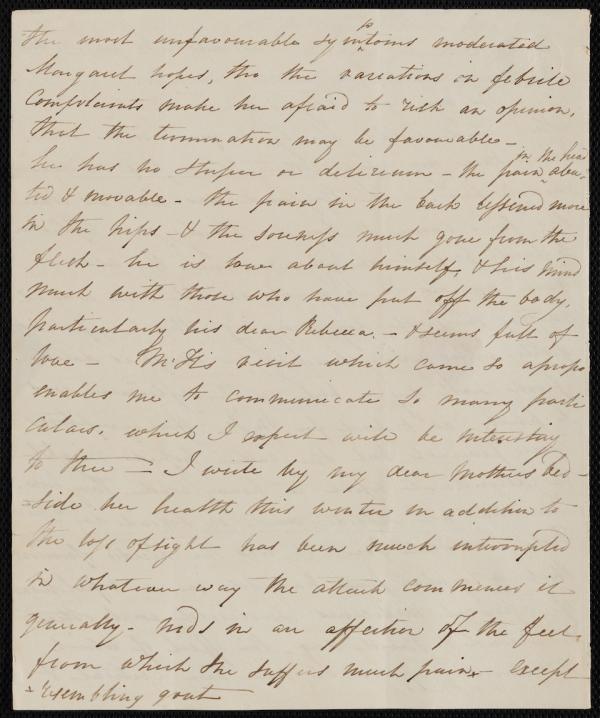 the most unfavourable symptoms moderated
Margaret hopes, tho the variations in febrile
Complaints make her afraid to risk an opinion,
that the termination may be favourable –
he has no stupor or delirium – the pain in the head aba-
ted & movable – the pain in the back lessened more
in the hips – & the soreness much gone from the
flesh – he is low about himself, & his mind
much with those who have put off the body,
particularly his dear Rebecca. – & seems full of
love – visit which came so apropo
enables me to communicate so many parti
culars, which I expect will be interesting
to thee – I write by my dear Mothers bed-
side her health this winter in addition to
the loss of sight has been much interrupted
in whatever way the attack commences it
generally – ends in an affection of the feet,
from which she suffers much pain + except
+ resembling gout